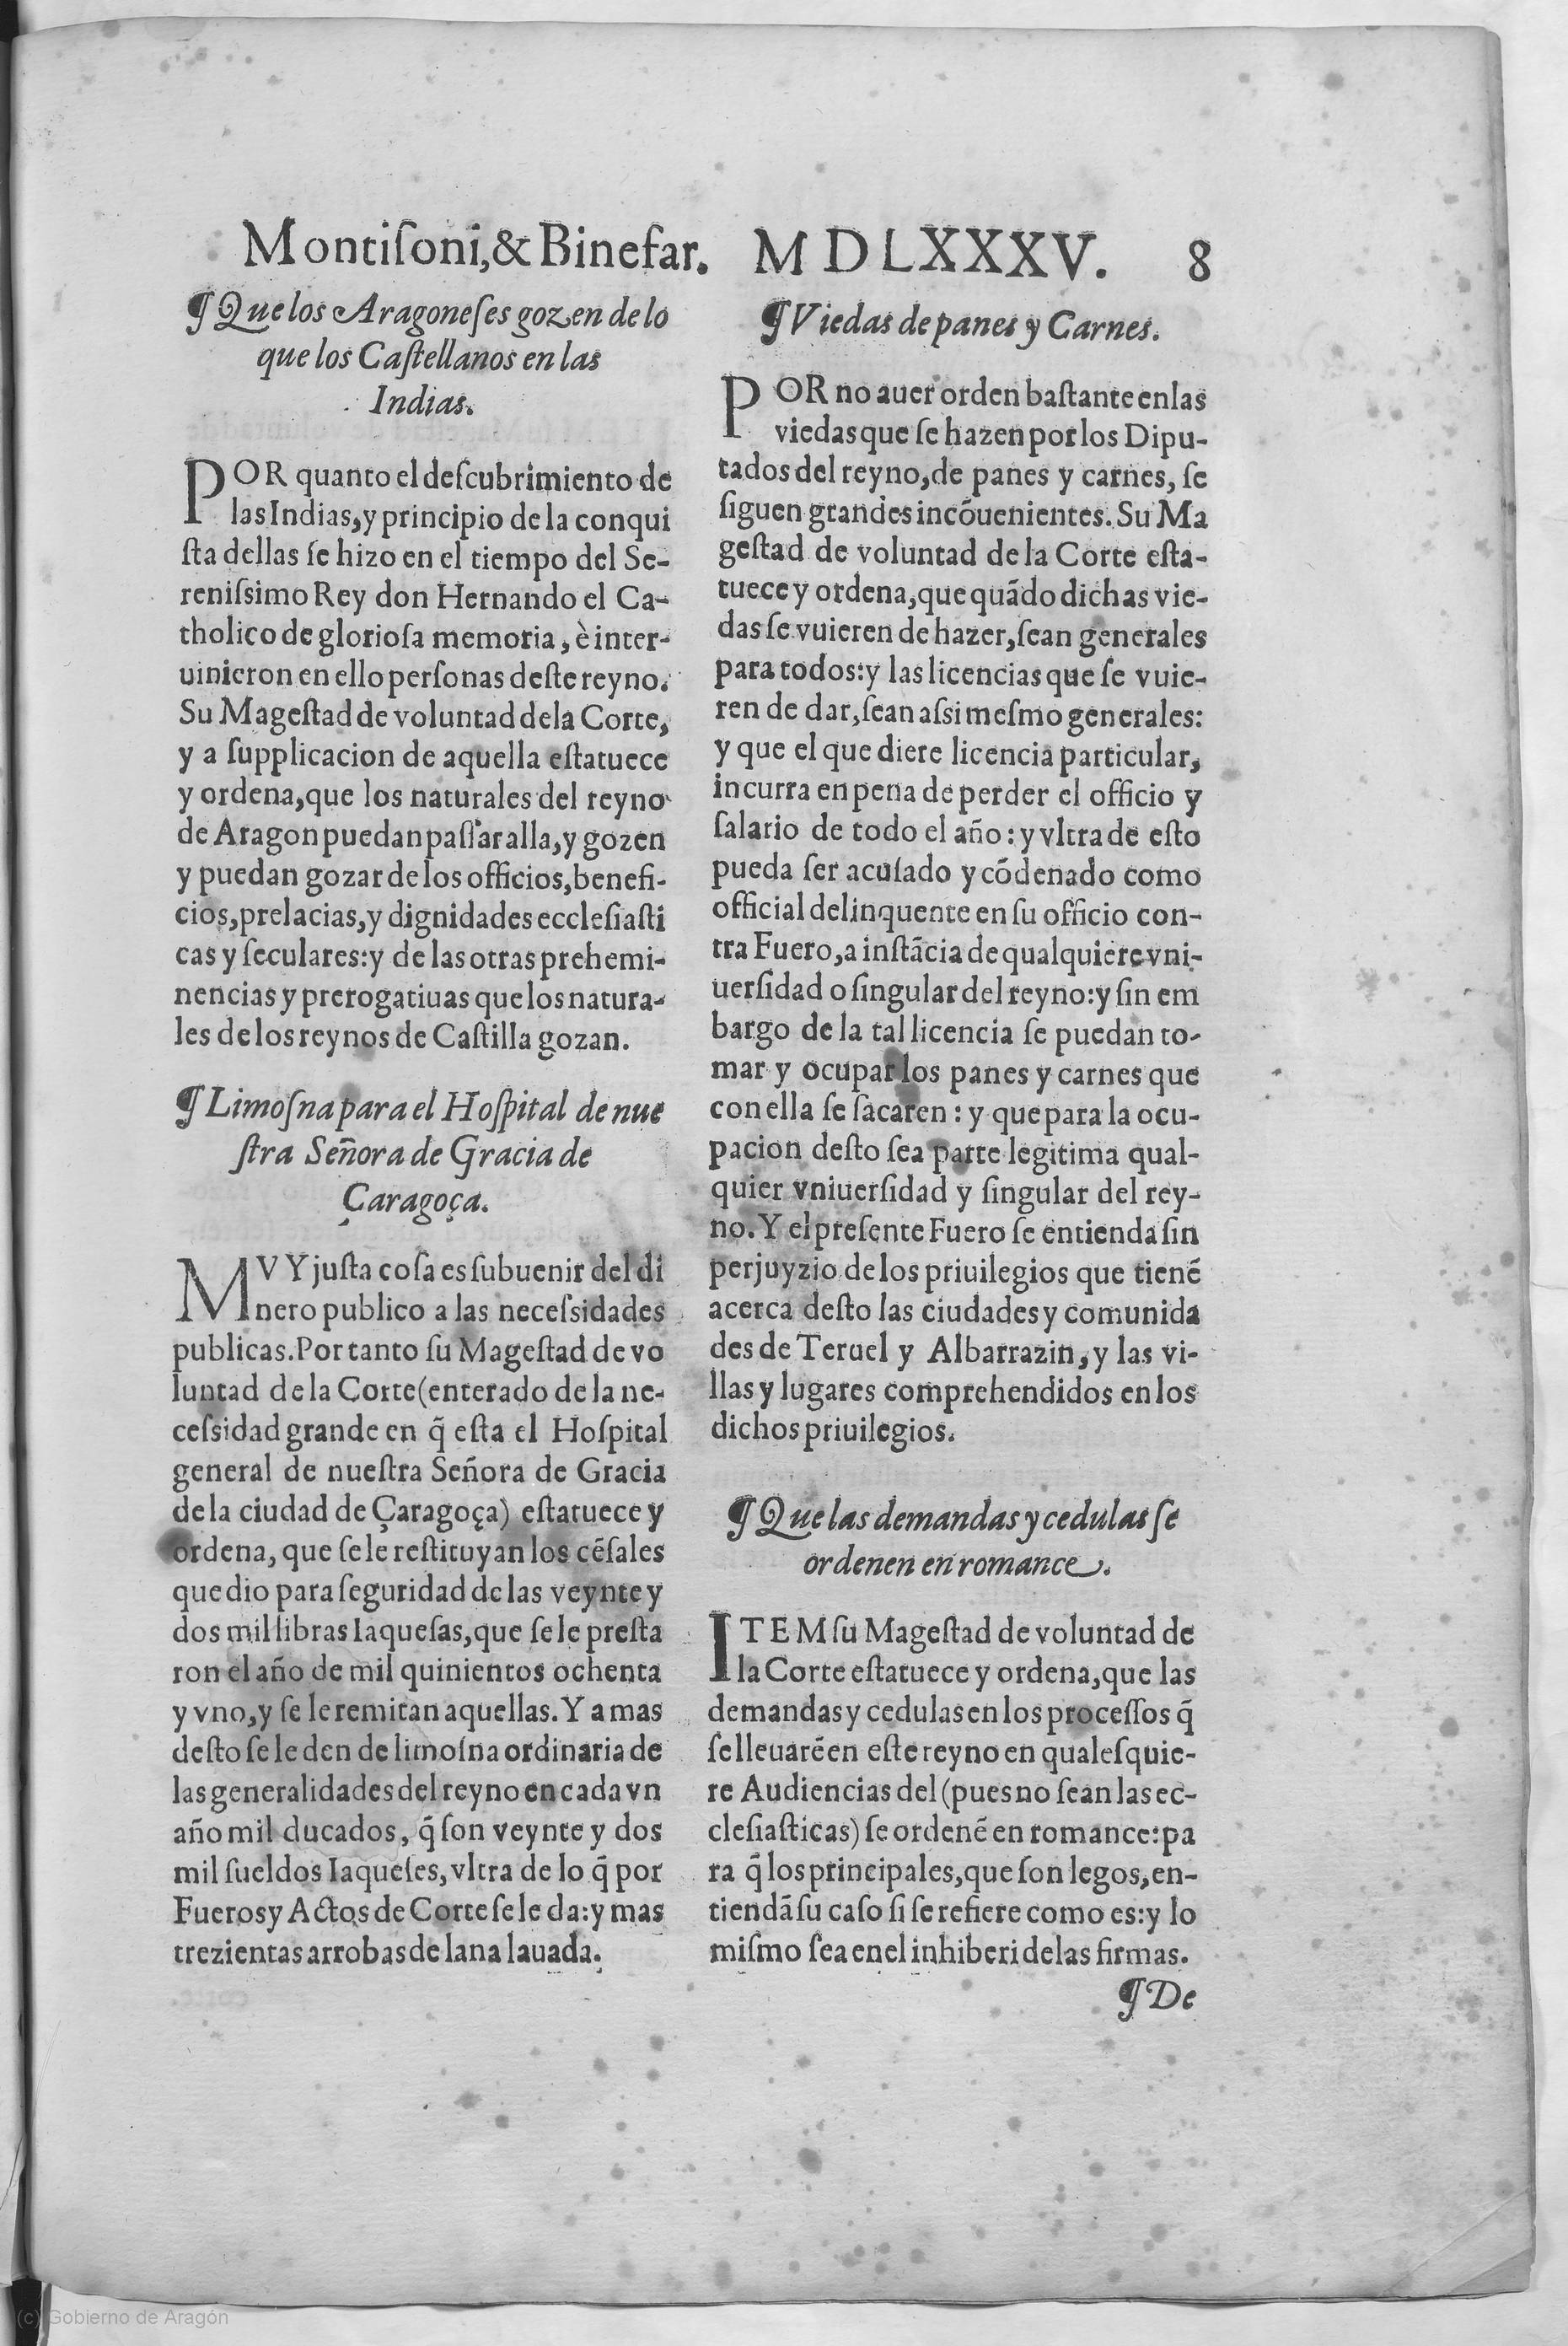 Montiſoni,& Binefar. MDLXXXV. 8
¶ Que los Aragoneſes gozen de lo
que los Caſtellanos en las
Indias.
POR quanto el deſcubrimiento de
las Indias, y principio de la conqui
ſta dellas ſe hizo en el tiempo del Se-
reniſsimo Rey don Hernando el Ca-
tholico de glorioſa memoria, è inter-
uinieron en ello perſonas deſte reyno.
Su Mageſtad de voluntad dela Corte,
y a ſupplicacion de aquella eſtatuece
y ordena, que los naturales del reyno
de Aragon puedan paſſar alla, y gozen
y puedan gozar de los officios, benefi-
cios, prelacias, y dignidades eccleſiaſti
cas y ſeculares: y de las otras prehemi-
nencias y prerogatiuas que los natura-
les de los reynos de Caſtilla gozan.
¶ Limoſna para el Hoſpital de nue
ſtra Señora de Gracia de
Çaragoça.
MVY juſta coſa es ſubuenir del di
nero publico a las neceſsidades
publicas. Por tanto ſu Mageſtad de vo
luntad de la Corte (enterado de la ne-
ceſsidad grande en q̃ eſta el Hoſpital
general de nueſtra Señora de Gracia
de la ciudad de Çaragoça) eſtatuece y
ordena, que ſe le reſtituyan los cẽſales
que dio para ſeguridad de las veynte y
dos mil libras Iaqueſas, que ſe le preſta
ron el año de mil quinientos ochenta
y vno, y ſe le remitan aquellas. Y a mas
deſto ſe le den de limoſna ordinaria de
las generalidades del reyno en cada vn
año mil ducados, q̃ ſon veynte y dos
mil ſueldos Iaqueſes, vltra de lo q̃ por
Fueros y Actos de Corte ſe le da: y mas
trezientas arrobas de lana lauada.
¶ Viedas de panes y Carnes.
POR no auer orden baſtante en las
viedas que ſe hazen por los Dipu-
tados del reyno, de panes y carnes, ſe
ſiguen grandes incõuenientes. Su Ma
geſtad de voluntad de la Corte eſta-
tuece y ordena, que quãdo dichas vie-
das ſe vuieren de hazer, ſean generales
para todos: y las licencias que ſe vuie-
ren de dar, ſean aſsi meſmo generales:
y que el que diere licencia particular,
incurra en pena de perder el officio y
ſalario de todo el año: y vltra de eſto
pueda ſer acuſado y cõdenado como
official delinquente en ſu officio con-
tra Fuero, a inſtãcia de qualquiere vni-
uerſidad o ſingular del reyno: y ſin em
bargo de la tal licencia ſe puedan to-
mar y ocupar los panes y carnes que
con ella ſe ſacaren: y que para la ocu-
pacion deſto ſea parte legitima qual-
quier vniuerſidad y ſingular del rey-
no. Y el preſente Fuero ſe entienda ſin
perjuyzio de los priuilegios que tienẽ
acerca deſto las ciudades y comunida
des de Teruel y Albarrazin, y las vi-
llas y lugares comprehendidos en los
dichos priuilegios.
¶ Que las demandas y cedulas ſe
ordenen en romance.
ITEM ſu Mageſtad de voluntad de
la Corte eſtatuece y ordena, que las
demandas y cedulas en los proceſſos q̃
ſe lleuarẽ en eſte reyno en qualeſquie-
re Audiencias del (pues no ſean las ec-
cleſiaſticas) ſe ordenẽ en romance: pa
ra q̃ los principales, que ſon legos, en-
tiendã ſu caſo ſi ſe refiere como es: y lo
miſmo ſea en el inhiberi de las firmas.
¶ De
(c) Gobierno de Aragón